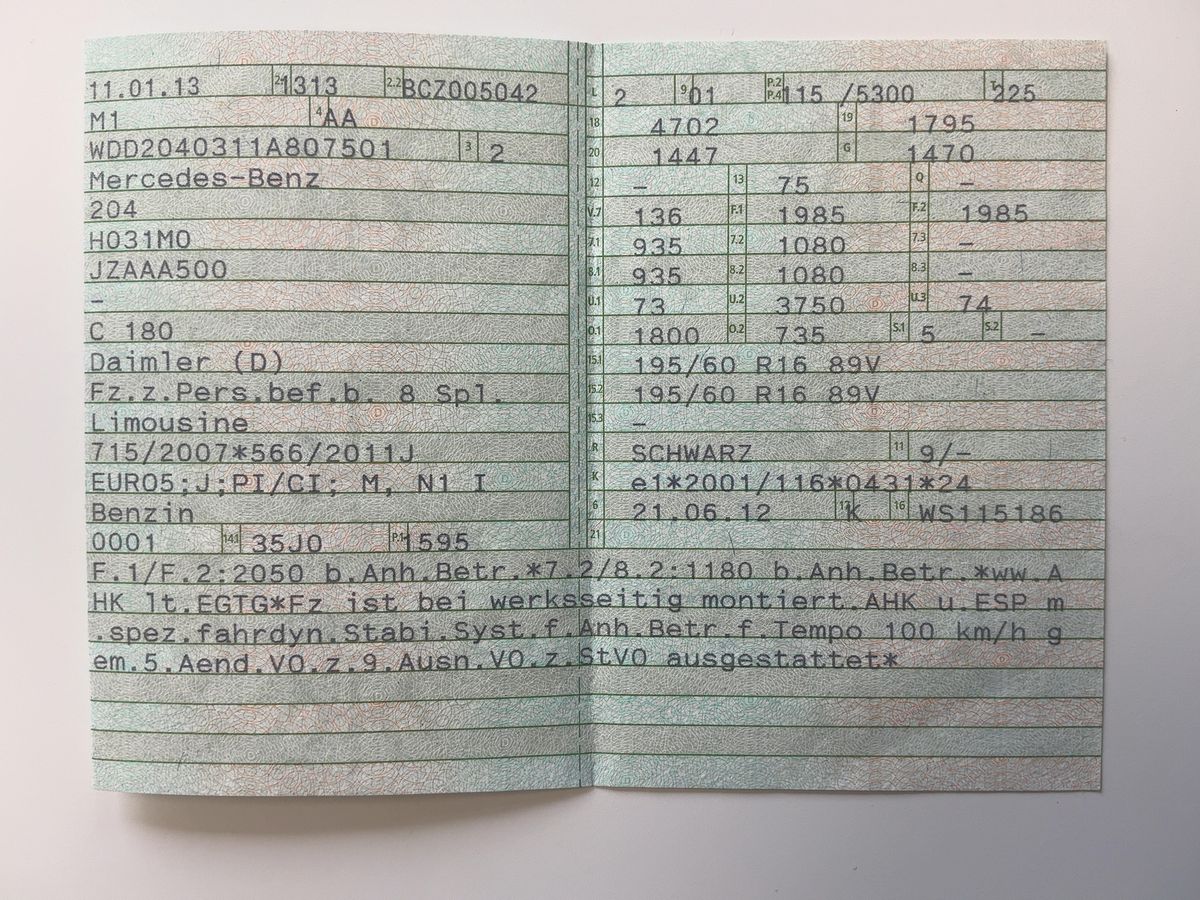 11.01.13 2.1 1313 2.2 BCZ005042
M1 4 AA
WDD2040311A807501 3 2
Mercedes-Benz
204
H031M0
JZAAA500
–
C 180
Daimler (D)
Fz.z.Pers.bef.b. 8 Spl.
Limousine
715/2007*566/2011J
EURO5;J;PI/CI; M, N1 I
Benzin
0001 14.1 35J0 P.1 1595
L 2 9 01 P.2 P.4 115 /5300 T 225
18 4702 19 1795
20 1447 G 1470
12 – 13 75 Q –
V.7 136 F.1 1985 F.2 1985
7.1 935 7.2 1080 7.3 –
8.1 935 8.2 1080 8.3 –
U.1 73 U.2 3750 U.3 74
O.1 1800 O.2 735 S.1 5 S.2 –
15.1 195/60 R16 89V
15.2 195/60 R16 89V
15.3 –
R SCHWARZ 11 9/–
K e1*2001/116*0431*24
6 21.06.12 17 K 16 WS115186
21
F.1/F.2:2050 b.Anh.Betr.*7.2/8.2:1180 b.Anh.Betr.*ww.A
HK lt.EGTG*Fz ist bei werksseitig montiert.AHK u.ESP m
.spez.fahrdyn.Stabi.Syst.f.Anh.Betr.f.Tempo 100 km/h g
em.5.Aend.VO.z.9.Ausn.VO.z.StVO ausgestattet*